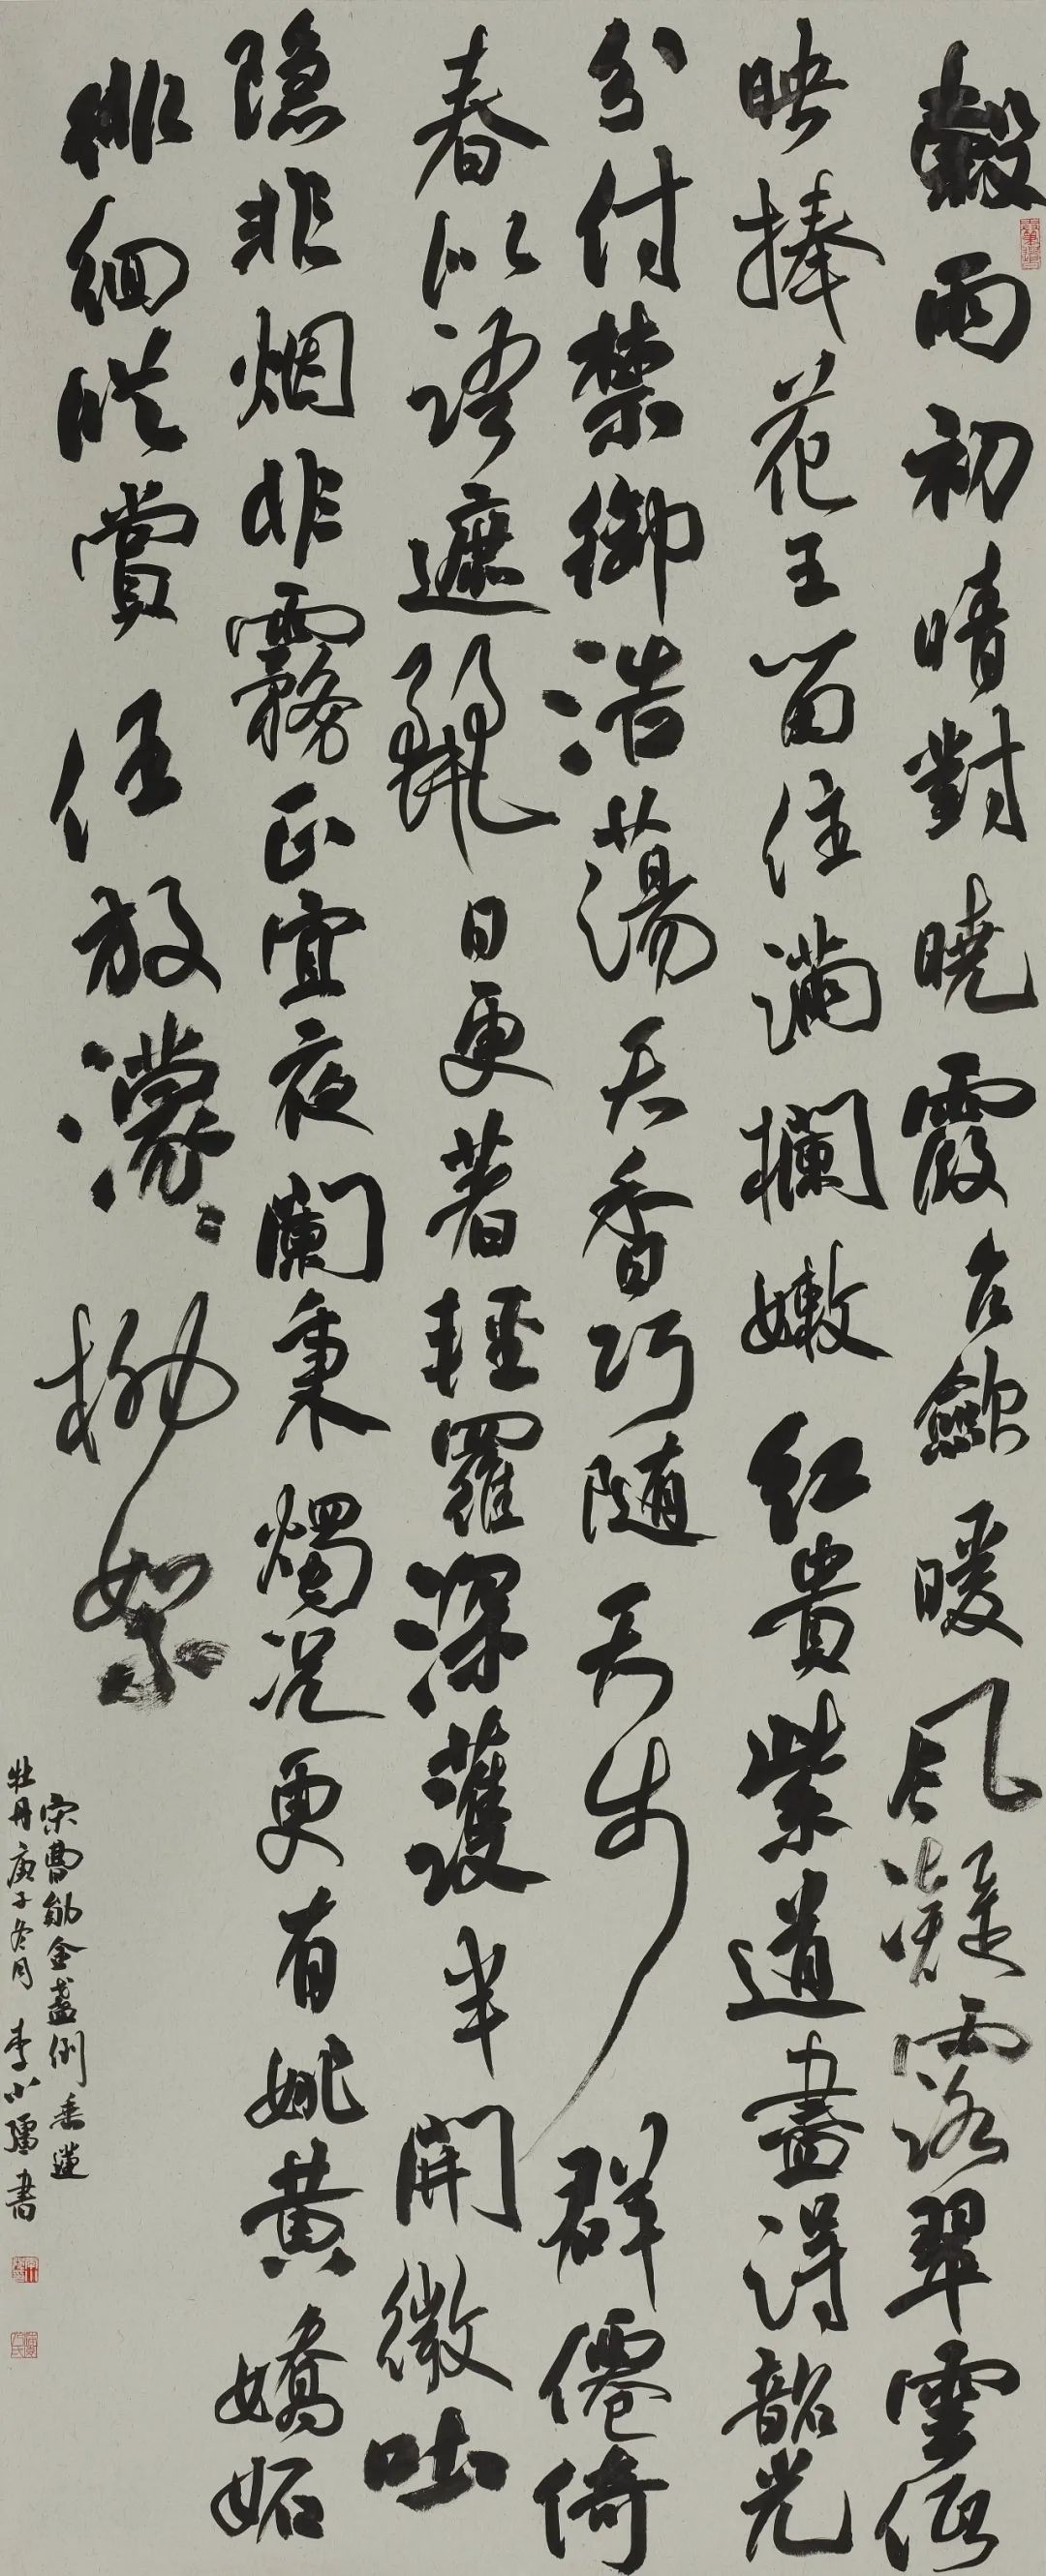 穀雨初晴對曉霞乍斂暖風凝露翠雲低
映捧花王留住滿欄嫩紅貴紫道盡得韶光
分付禁籞浩蕩天香巧隨天步羣僊倚
春似語遮麗日更著輕羅深護半開微吐
隱非烟非霧正宜夜闌秉燭況更有姚黃嬌妒
徘徊縱賞任放濛濛柳絮
宋曹勛金盞倒垂蓮
牡丹庚子冬月 李小孺書